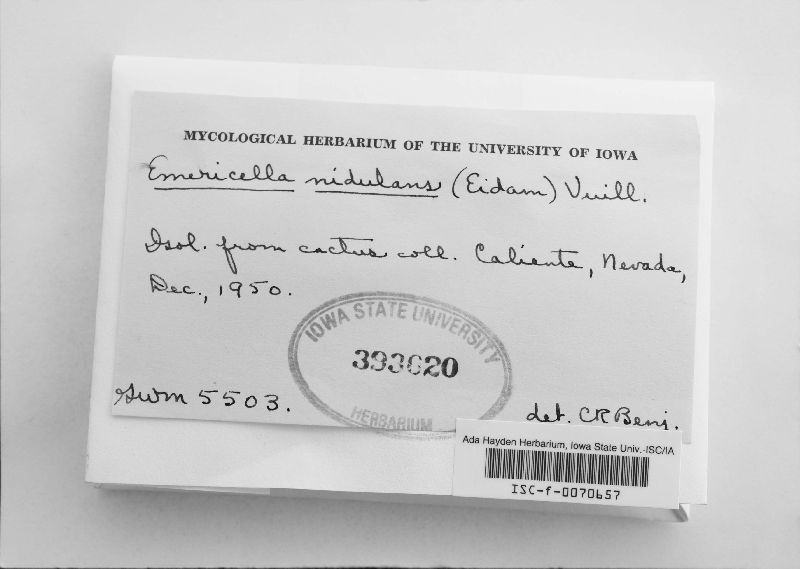 MYCOLOGICAL HERBARIUM OF THE UNIVERSITY OF IOWA
Emericella nidulans (Eidam) Vuill.
Isol. from cactus coll. Caliente, Nevada,
Dec., 1950.
IOWA STATE UNIVERSITY
393620
HERBARIUM
GWM 5503.
det. CR Benj.
Ada Hayden Herbarium, Iowa State Univ.-ISC/IA
ISC-f-0070657